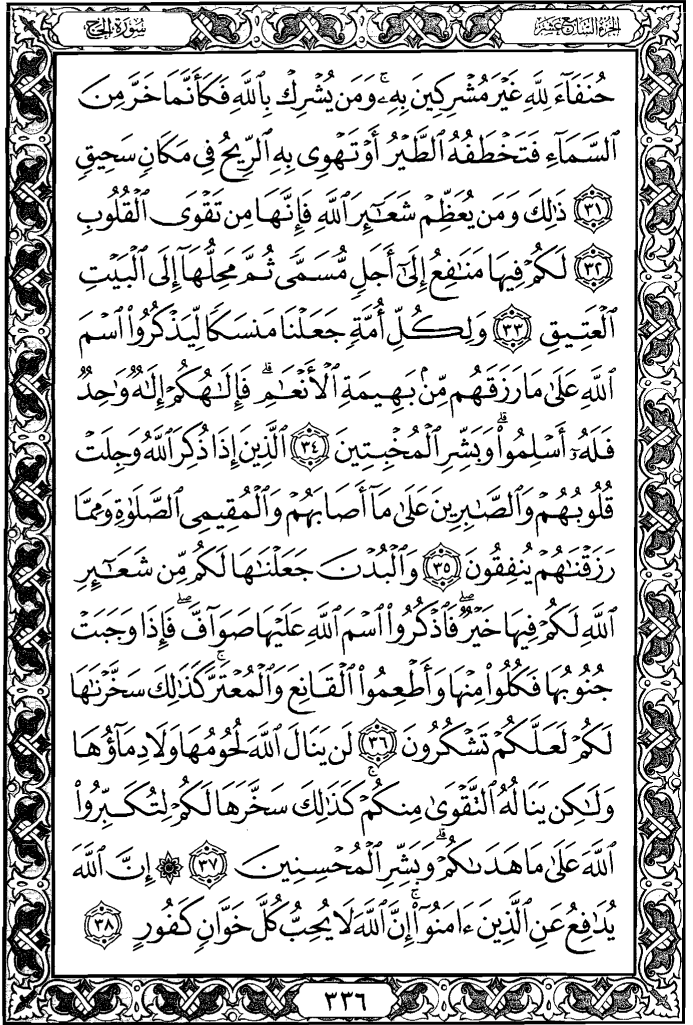 الجزء السابع عشر
سورة الحج
حُنَفَآءَ لِلَّهِ غَيْرَ مُشْرِكِينَ بِهِۦۚ وَمَن يُشْرِكْ بِٱللَّهِ فَكَأَنَّمَا خَرَّ مِنَ
ٱلسَّمَآءِ فَتَخْطَفُهُ ٱلطَّيْرُ أَوْ تَهْوِى بِهِ ٱلرِّيحُ فِى مَكَانٍ سَحِيقٍ
٣١ ذَٰلِكَ وَمَن يُعَظِّمْ شَعَٰٓئِرَ ٱللَّهِ فَإِنَّهَا مِن تَقْوَى ٱلْقُلُوبِ
٣٢ لَكُمْ فِيهَا مَنَٰفِعُ إِلَىٰٓ أَجَلٍ مُّسَمًّى ثُمَّ مَحِلُّهَآ إِلَى ٱلْبَيْتِ
ٱلْعَتِيقِ ٣٣ وَلِكُلِّ أُمَّةٍ جَعَلْنَا مَنسَكًا لِّيَذْكُرُوا۟ ٱسْمَ
ٱللَّهِ عَلَىٰ مَا رَزَقَهُم مِّنۢ بَهِيمَةِ ٱلْأَنْعَٰمِۗ فَإِلَٰهُكُمْ إِلَٰهٌ وَٰحِدٌ
فَلَهُۥٓ أَسْلِمُوا۟ۗ وَبَشِّرِ ٱلْمُخْبِتِينَ ٣٤ ٱلَّذِينَ إِذَا ذُكِرَ ٱللَّهُ وَجِلَتْ
قُلُوبُهُمْ وَٱلصَّٰبِرِينَ عَلَىٰ مَآ أَصَابَهُمْ وَٱلْمُقِيمِى ٱلصَّلَوٰةِ وَمِمَّا
رَزَقْنَٰهُمْ يُنفِقُونَ ٣٥ وَٱلْبُدْنَ جَعَلْنَٰهَا لَكُم مِّن شَعَٰٓئِرِ
ٱللَّهِ لَكُمْ فِيهَا خَيْرٌۖ فَٱذْكُرُوا۟ ٱسْمَ ٱللَّهِ عَلَيْهَا صَوَآفَّۖ فَإِذَا وَجَبَتْ
جُنُوبُهَا فَكُلُوا۟ مِنْهَا وَأَطْعِمُوا۟ ٱلْقَانِعَ وَٱلْمُعْتَرَّۚ كَذَٰلِكَ سَخَّرْنَٰهَا
لَكُمْ لَعَلَّكُمْ تَشْكُرُونَ ٣٦ لَن يَنَالَ ٱللَّهَ لُحُومُهَا وَلَا دِمَآؤُهَا
وَلَٰكِن يَنَالُهُ ٱلتَّقْوَىٰ مِنكُمْۚ كَذَٰلِكَ سَخَّرَهَا لَكُمْ لِتُكَبِّرُوا۟
ٱللَّهَ عَلَىٰ مَا هَدَىٰكُمْۗ وَبَشِّرِ ٱلْمُحْسِنِينَ ٣٧ ۞ إِنَّ ٱللَّهَ
يُدَٰفِعُ عَنِ ٱلَّذِينَ ءَامَنُوٓا۟ۗ إِنَّ ٱللَّهَ لَا يُحِبُّ كُلَّ خَوَّانٍ كَفُورٍ ٣٨
٣٣٦